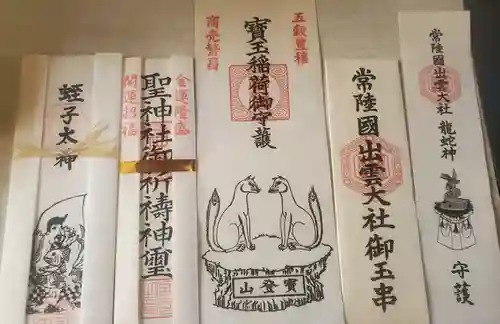 蛭子太神
開運招福
金運隆盛
聖神社御祈祷神璽
商売繁昌
五穀豊穣
寶玉稲荷御守護
寶登山
常陸國出雲大社御玉串
常陸國出雲大社 龍蛇神
守護